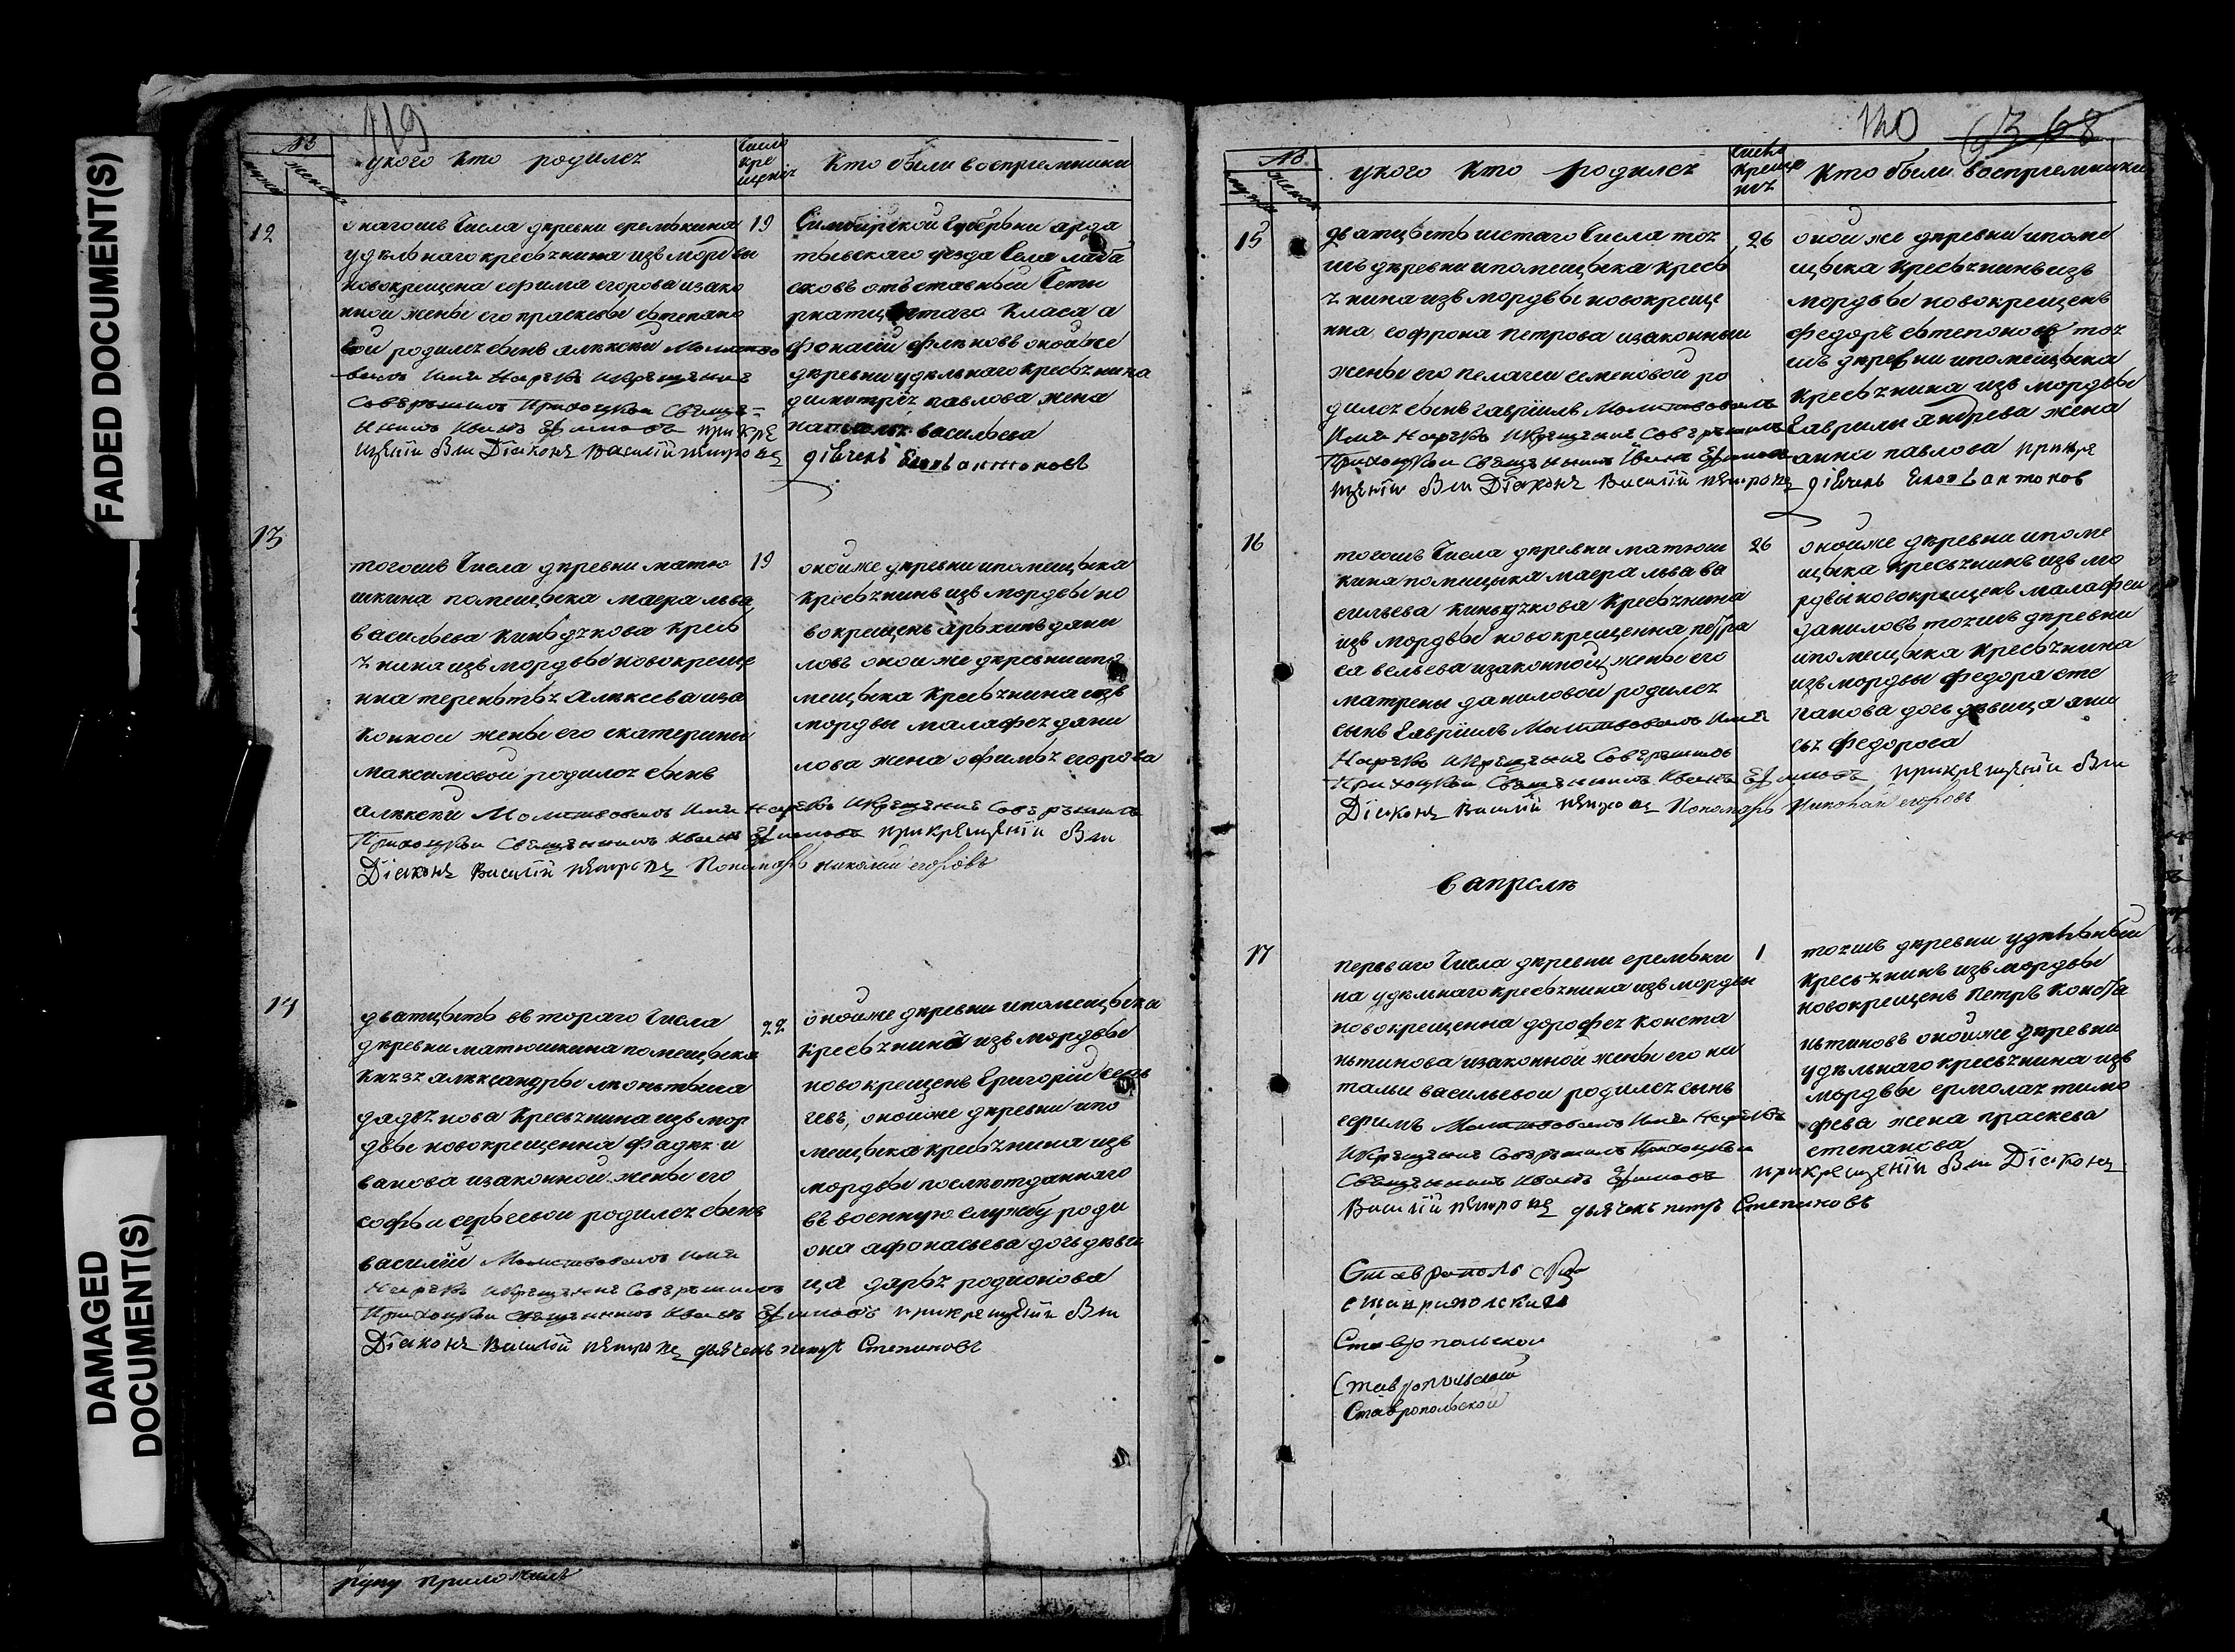 FADED DOCUMENT(S)
DAMAGED
DOCUMENT(S)
119
№
мужск женск
у кого кто родился
число
кре
щения
кто были восприемники
12
онагошъ числа деревни еремькина
19
удельнаго кресьянина изъ мордвы
новокрещена ефима егорова изако
нной жены его праскевы степано
вой родился сынъ алексей Молитво
валъ имя нарекъ и крещение
совершилъ приходской свяще-
нникъ иванъ при кре
щении был Диаконъ василий петровъ
Симбирской губерни арда
товьскаго уезда села
отъставный четы
рнатцатаго класа а
фонасий оной же
деревни удельнаго кресьянина
димитрия павлова жена
васильева
дьячекъ антоновъ
13
тогошъ числа деревни матю
19
шкина помещика маера льва
васильева киньдякова кресь
янина изъ мордвы новокреще
нна терентья алексеева иза
конной жены его екатерины
максимовой родился сынъ
алексей Молитвовалъ имя нарекъ и крещение совершилъ
приходской священникъ иванъ при крещении был
Диаконъ василий петровъ Пономарь николай егоровъ
оной же деревни и помещика
кресьянинъ изъ мордвы но
вокрещенъ архипъ дани
ловъ оной же деревни и по
мещика кресьянина изъ
мордвы малафея дани
лова жена офимья егорова
14
дватцать втораго числа
22
деревни матюшкина помещика
князя александры леонтьева
дадянова кресьянина изъ мор
двы новокрещенна фадея и
ванова изаконной жены его
софьи сергеевой родился сынъ
василий Молитвовалъ имя
нарекъ и крещение совершилъ
приходской священникъ иванъ при крещении был
Диаконъ василий петровъ дьячекъ петръ Степановъ
оной же деревни и помещика
кресьянинъ изъ мордвы
новокрещенъ григорий
оной же деревни и по
мещика кресьянина изъ
мордвы после отданнаго
въ военную службу роди
она афонасьева дочь деви
ца дарья родионова
руку приложилъ
120
68
№
мужск женск
у кого кто родился
число
креще
ния
кто были восприемники
15
дватцать шестаго числа тоя
26
шъ деревни и помещика кресь
янина изъ мордвы новокреще
нна софрона петрова изаконный
жены его пелагеи семеновой ро
дился сынъ гавриилъ Молитвовалъ
имя нарекъ и крещение совершилъ
приходской священникъ иванъ
щении был Диаконъ василий петровъ
оной же деревни и поме
щика кресьянинъ изъ
мордвы новокрещенъ
федоръ степоновъ тоя
шъ деревни и помещика
кресьянина изъ мордвы
гаврилы андрева жена
анна павлова при кре
дьячекъ антонов
16
тогошъ числа деревни матюш
26
кина помещика маера льва ва
сильева киньдякова кресьянина
изъ мордвы новокрещенна петра
савельева изаконной жены его
матрены даниловой родился
сынъ гавриилъ Молитвовалъ имя
нарекъ и крещение совершилъ
приходской священникъ иванъ при крещении был
Диаконъ василий петровъ Пономарь николай егоровъ
оной же деревни и поме
щика кресьянинъ изъ мо
рдвы новокрещенъ малафей
даниловъ тояшъ деревни
и помещика кресьянина
изъ мордвы федора сте
панова дочь девица ани
сья федорова
в апреле
17
перьваго числа деревни еремьки
1
на удельнаго кресьянина изъ мордвы
новокрещенна дорофея конста
ньтинова изаконной жены его на
тальи васильевой родился сынъ
ефимъ Молитвовалъ имя нарекъ
и крещение совершилъ приходской
священникъ иванъ при крещении был Диаконъ
василий петровъ дьячекъ петръ Степановъ
тояшъ деревни удельный
кресьянинъ изъ мордвы
новокрещенъ петръ конста
ньтиновъ оной же деревни
удельнаго кресьянина изъ
мордвы ермолая тимо
фева жена праскева
степанова
Ставрополь
Ставропольской
Ставропольской
Ставропольской